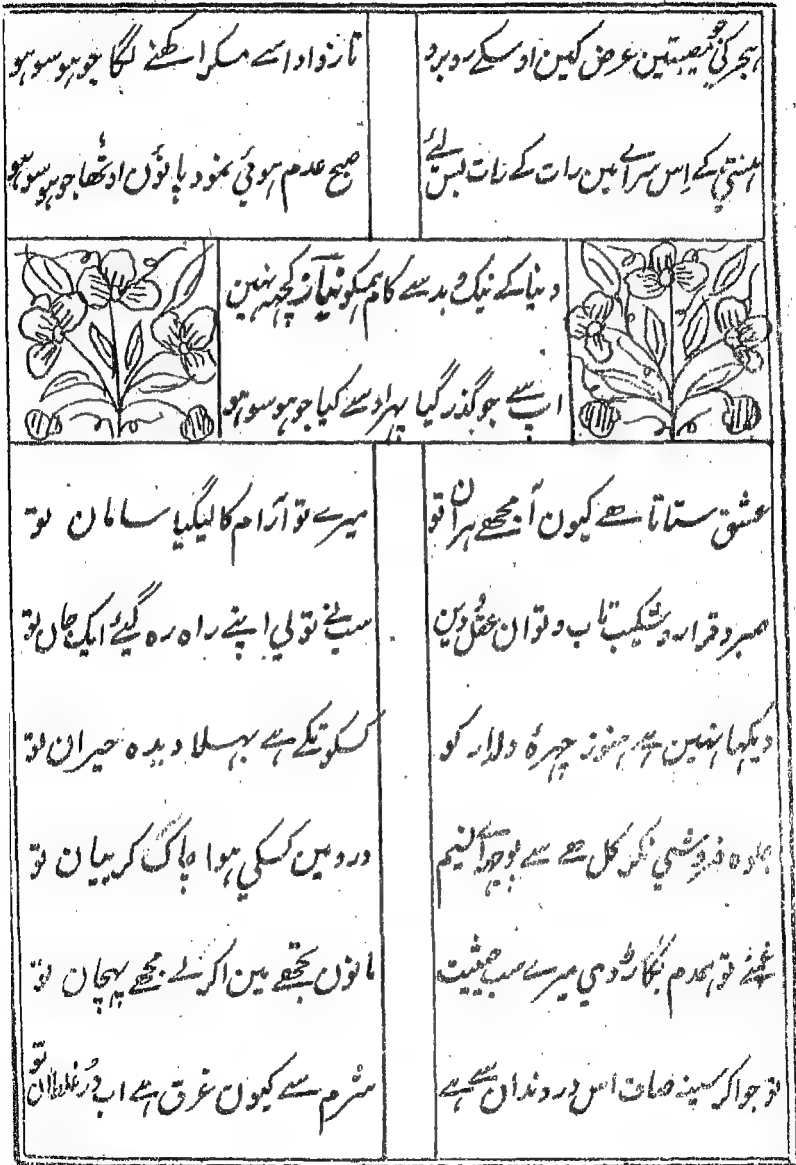 ہجر کی جو مصیبتین عرض کین اوسکے روبرو
نازو ادا سے مسکرا کہنے لگا جو ہو سو ہو
ہستی کے اِس سراے مین رات کے رات بس لئے
صبح عدم ہوئی نمود پانؤن اوٹھا جو ہو سو ہو
دنیا کے نیک و بد سے کام ہمکو نیاز کچھہ نہین
اپ سے جو گذر گیا پہر اوسے کیا جو ہو سو ہو
عشق ستاتا ہے کیون آ مجھے ہر آن تو
میرے تو آرام کا لیگیا سامان تو
صبر و قرار و شکیب تاب و توان عقل و دین
سب نے تو لی اپنے راہ رہ گئے ایک جان تو
دیکہا نہین ہے ہنوز چہرۂ دلدار کو
کسکو تکے ہے بہلا دیدہ حیران تو
جلوہ فروشی نکر گل سے پوچہہ نسیم
درد مین کسکی ہوا چاک گریبان تو
غمنے تو ہمدم بگاڑ دی میرے سب
مانون تجھے مین اگر لے مجھے پہچان تو
تو جو اگر سینہ صاف اس در دندان سے ہے
شرم سے کیون غرق ہے اب دُر غلطان تو